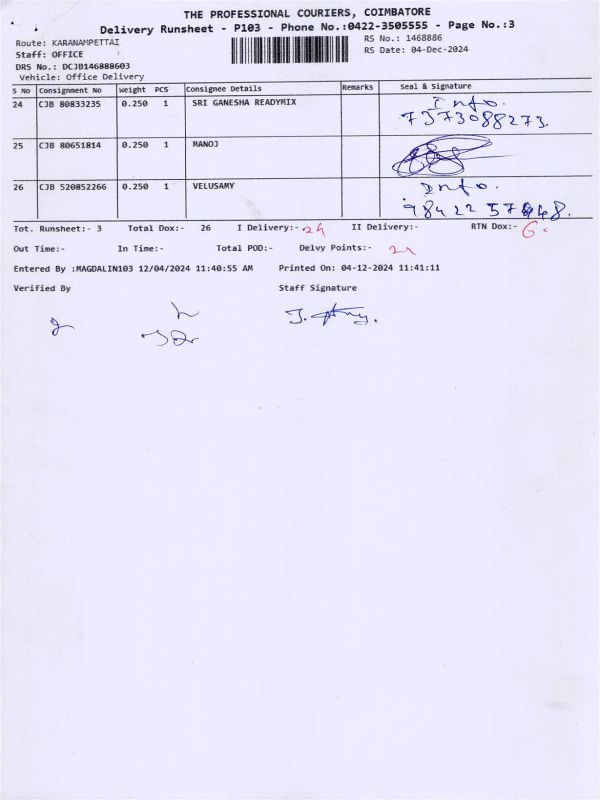 THE PROFESSIONAL COURIERS, COIMBATORE
Delivery Runsheet - P103 - Phone No.:0422-3505555 - Page No.:3
Route: KARANAMPETTAI
RS No.: 1468886
Staff: OFFICE
RS Date: 04-Dec-2024
DRS No.: DCJB146888603
Vehicle: Office Delivery
S No Consignment No Weight PCS Consignee Details Remarks Seal & Signature
24 CJB 80833235 0.250 1 SRI GANESHA READYMIX Info.
7373088273.
25 CJB 80651814 0.250 1 MANOJ
26 CJB 520852266 0.250 1 VELUSAMY Info.
Tot. Runsheet:- 3 Total Dox:- 26 I Delivery:- II Delivery:- RTN Dox:- 6.
Out Time:- In Time:- Total POD:- Delvy Points:-
Entered By :MAGDALIN103 12/04/2024 11:40:55 AM Printed On: 04-12-2024 11:41:11
Verified By Staff Signature